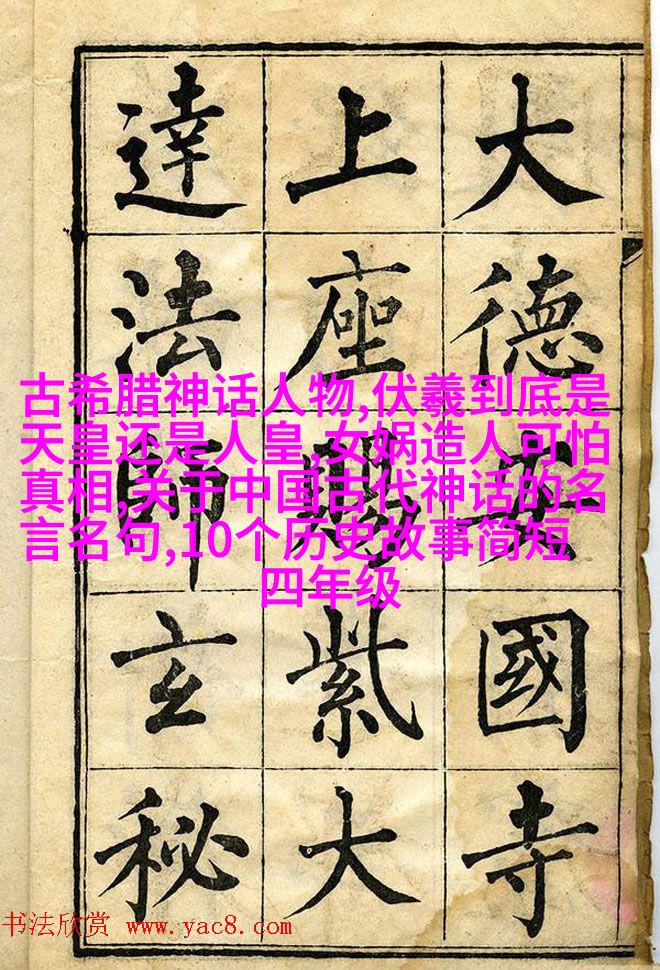 大德安國寺
上座賜紫大
達法師玄秘
古希腊神话人物,伏羲到底是
天皇还是人皇,女娲造人可怕
真相,关于中国古代神话的名
言名句,10个历史故事简短
四年级
书法欣赏 www.yac8.com